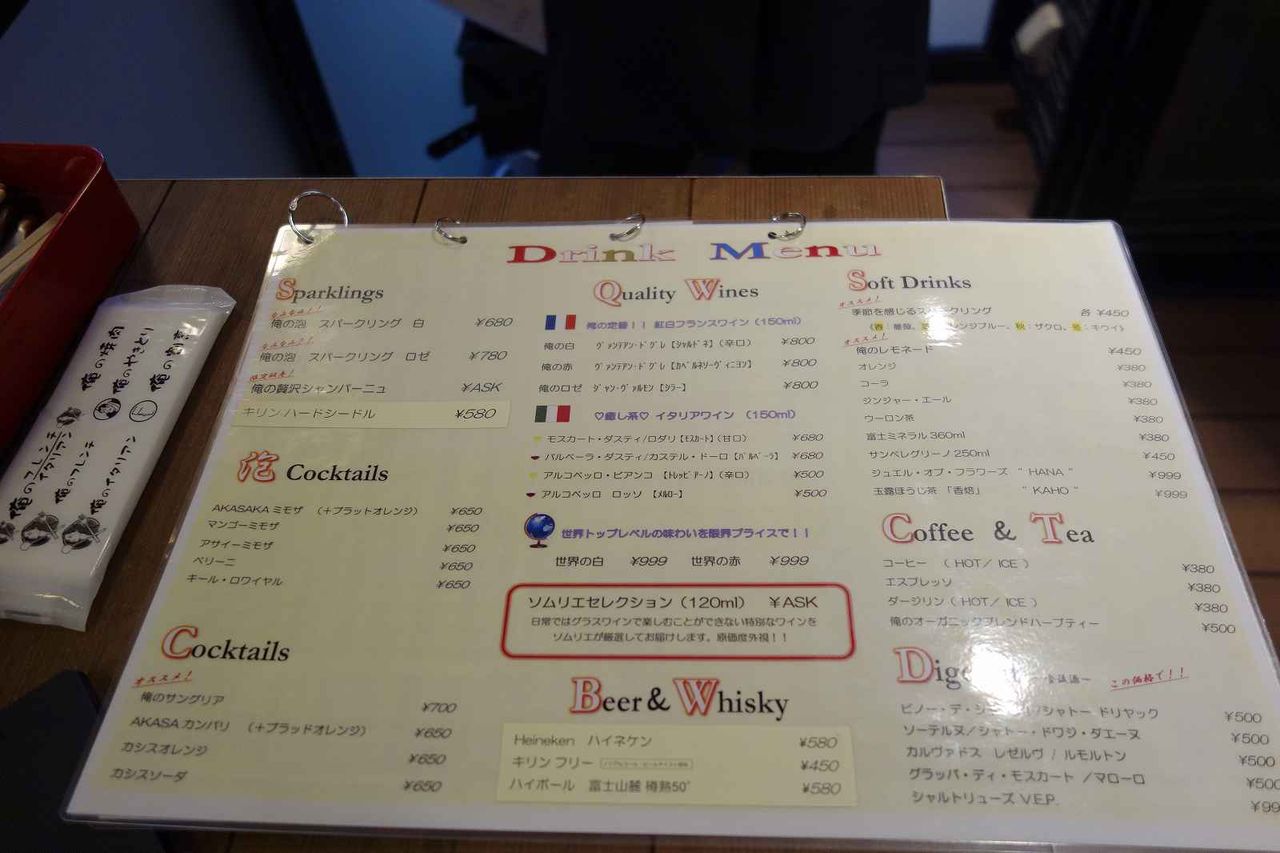 Drink Menu
Sparklings
俺の泡 スパークリング 白 ¥680
俺の泡 スパークリング ロゼ ¥780
俺の贅沢シャンパーニュ ¥ASK
キリン ハードシードル ¥580
泡 Cocktails
AKASAKA ミモザ (+ブラッドオレンジ) ¥650
マンゴーミモザ ¥650
アサイーミモザ ¥650
ベリーニ ¥650
キール・ロワイヤル ¥650
Cocktails
オススメ!
俺のサングリア ¥700
AKASAカンパリ (+ブラッドオレンジ) ¥650
カシスオレンジ ¥650
カシスソーダ ¥650
Quality Wines
俺の定番!! 紅白フランスワイン (150ml)
俺の白 ヴァンテアン・ドグレ【シャルドネ】(辛口) ¥800
俺の赤 ヴァンテアン・ドグレ【カベルネソーヴィニヨン】 ¥800
俺のロゼ ジャン・ヴァルモン【シラー】 ¥800
♡癒し系♡ イタリアワイン (150ml)
モスカート・ダスティ/ロダリ【モスカート】(甘口) ¥680
バルベーラ・ダスティ/カステル・ドーロ【バルベーラ】 ¥680
アルコベッロ・ビアンコ【トレッビアーノ】(辛口) ¥500
アルコベッロ ロッソ 【メルロー】 ¥500
世界トップレベルの味わいを限界プライスで!!
世界の白 ¥999 世界の赤 ¥999
ソムリエセレクション(120ml) ¥ASK
日常ではグラスワインで楽しむことができない特別なワインを
ソムリエが厳選してお届けします。原価度外視!!
Beer & Whisky
Heineken ハイネケン ¥580
キリン フリー ¥450
ハイボール 富士山麓 樽熟50° ¥580
Soft Drinks
オススメ!
季節を感じるスパークリング 各 ¥450
オススメ!
俺のレモネード ¥450
オレンジ ¥380
コーラ ¥380
ジンジャー・エール ¥380
ウーロン茶 ¥380
富士ミネラル 360ml ¥380
サンペレグリーノ 250ml ¥450
ジュエル・オブ・フラワーズ "HANA" ¥999
玉露ほうじ茶「香焙」 "KAHO" ¥999
Coffee & Tea
コーヒー (HOT/ ICE) ¥380
エスプレッソ ¥380
ダージリン (HOT/ ICE) ¥380
俺のオーガニックブレンドハーブティー ¥500
この価格で!!
ピノー・デ・ /シャトー ドリヤック ¥500
ソーテルヌ/シャトー・ドワジ・ダエーヌ ¥500
カルヴァドス レゼルヴ / ルモルトン ¥500
グラッパ・ディ・モスカート /マローロ ¥500
シャルトリューズ V.E.P.
俺の焼肉
俺のやきとり
俺の割烹
俺のフレンチ
イタリアン
俺のフレンチ
俺のイタリアン